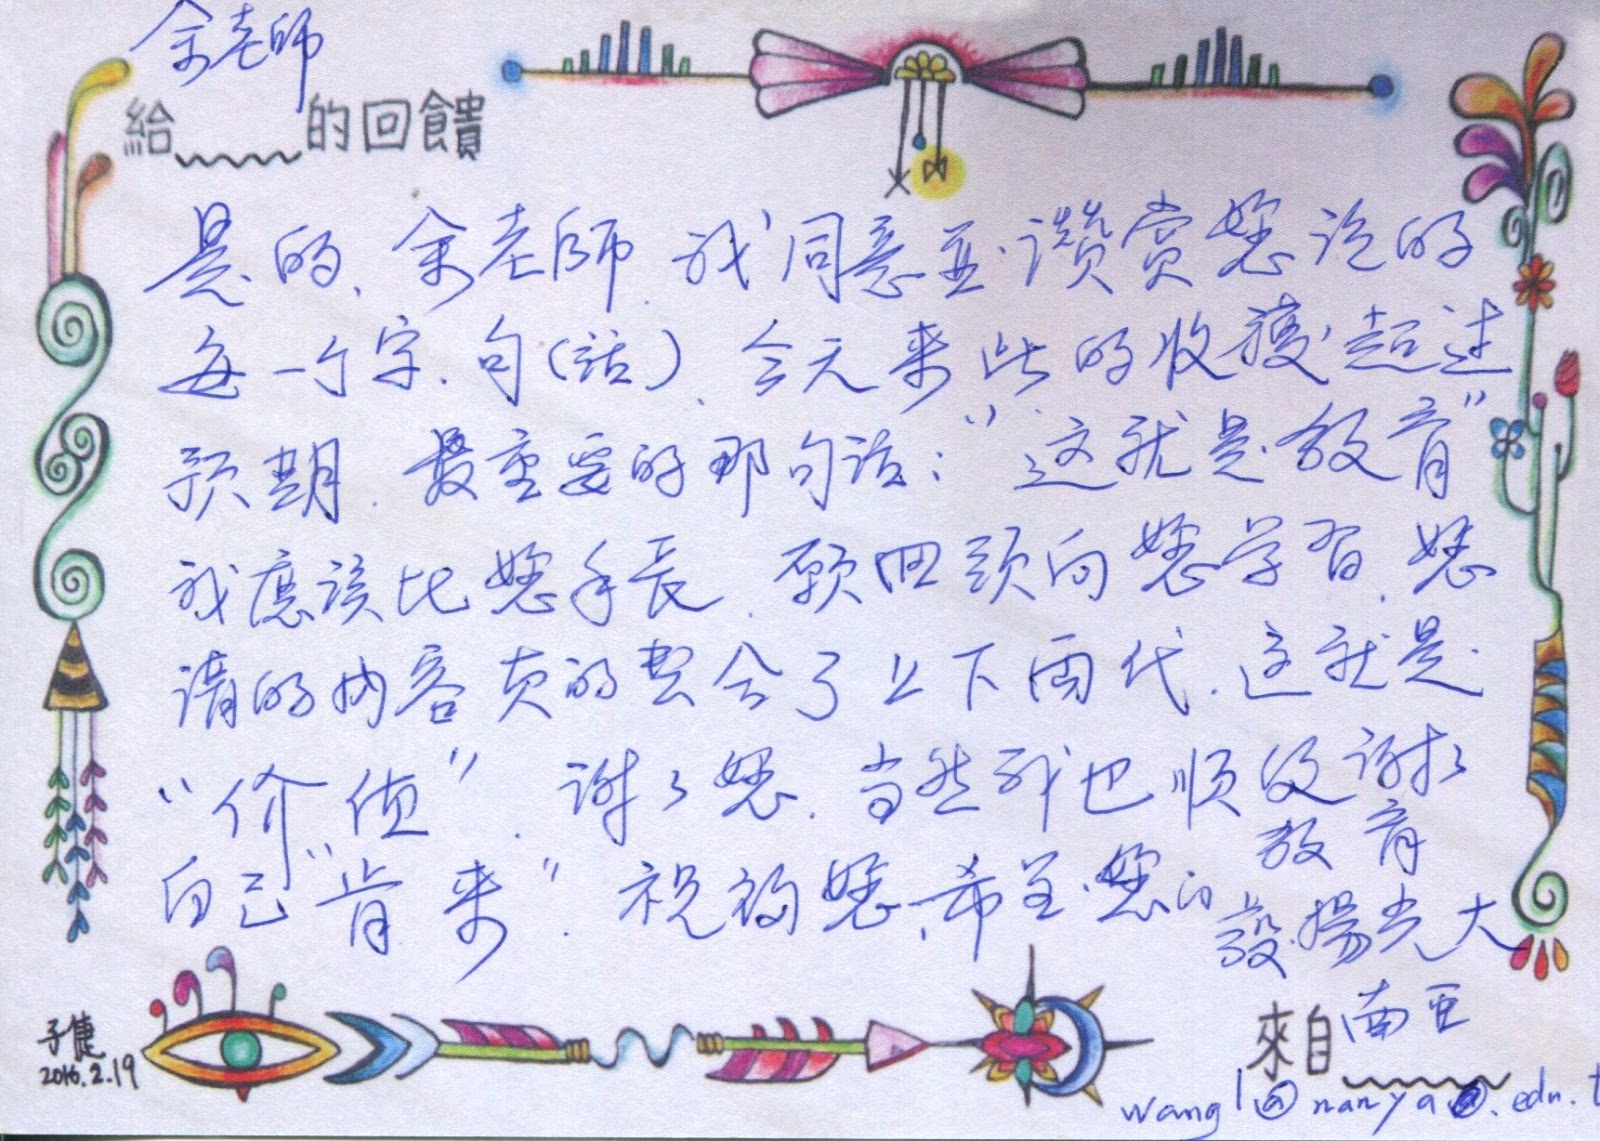 余老師
給 的回饋
是的、余老師、我同意並讚賞您說的
每一个字、句(話)、今天來此的收穫超过
預期、最重要的那句話:"这就是教育"
我應該比您年長、願回頭向您学習、您
講的內容真的契合了上下兩代、这就是
"价值"、謝々您、当然我也順便謝々
自己"肯來"、祝福您、希望您的教育
發揚光大
來自 南亞
wangl@nanya.edu.t
子倢
2016.2.19